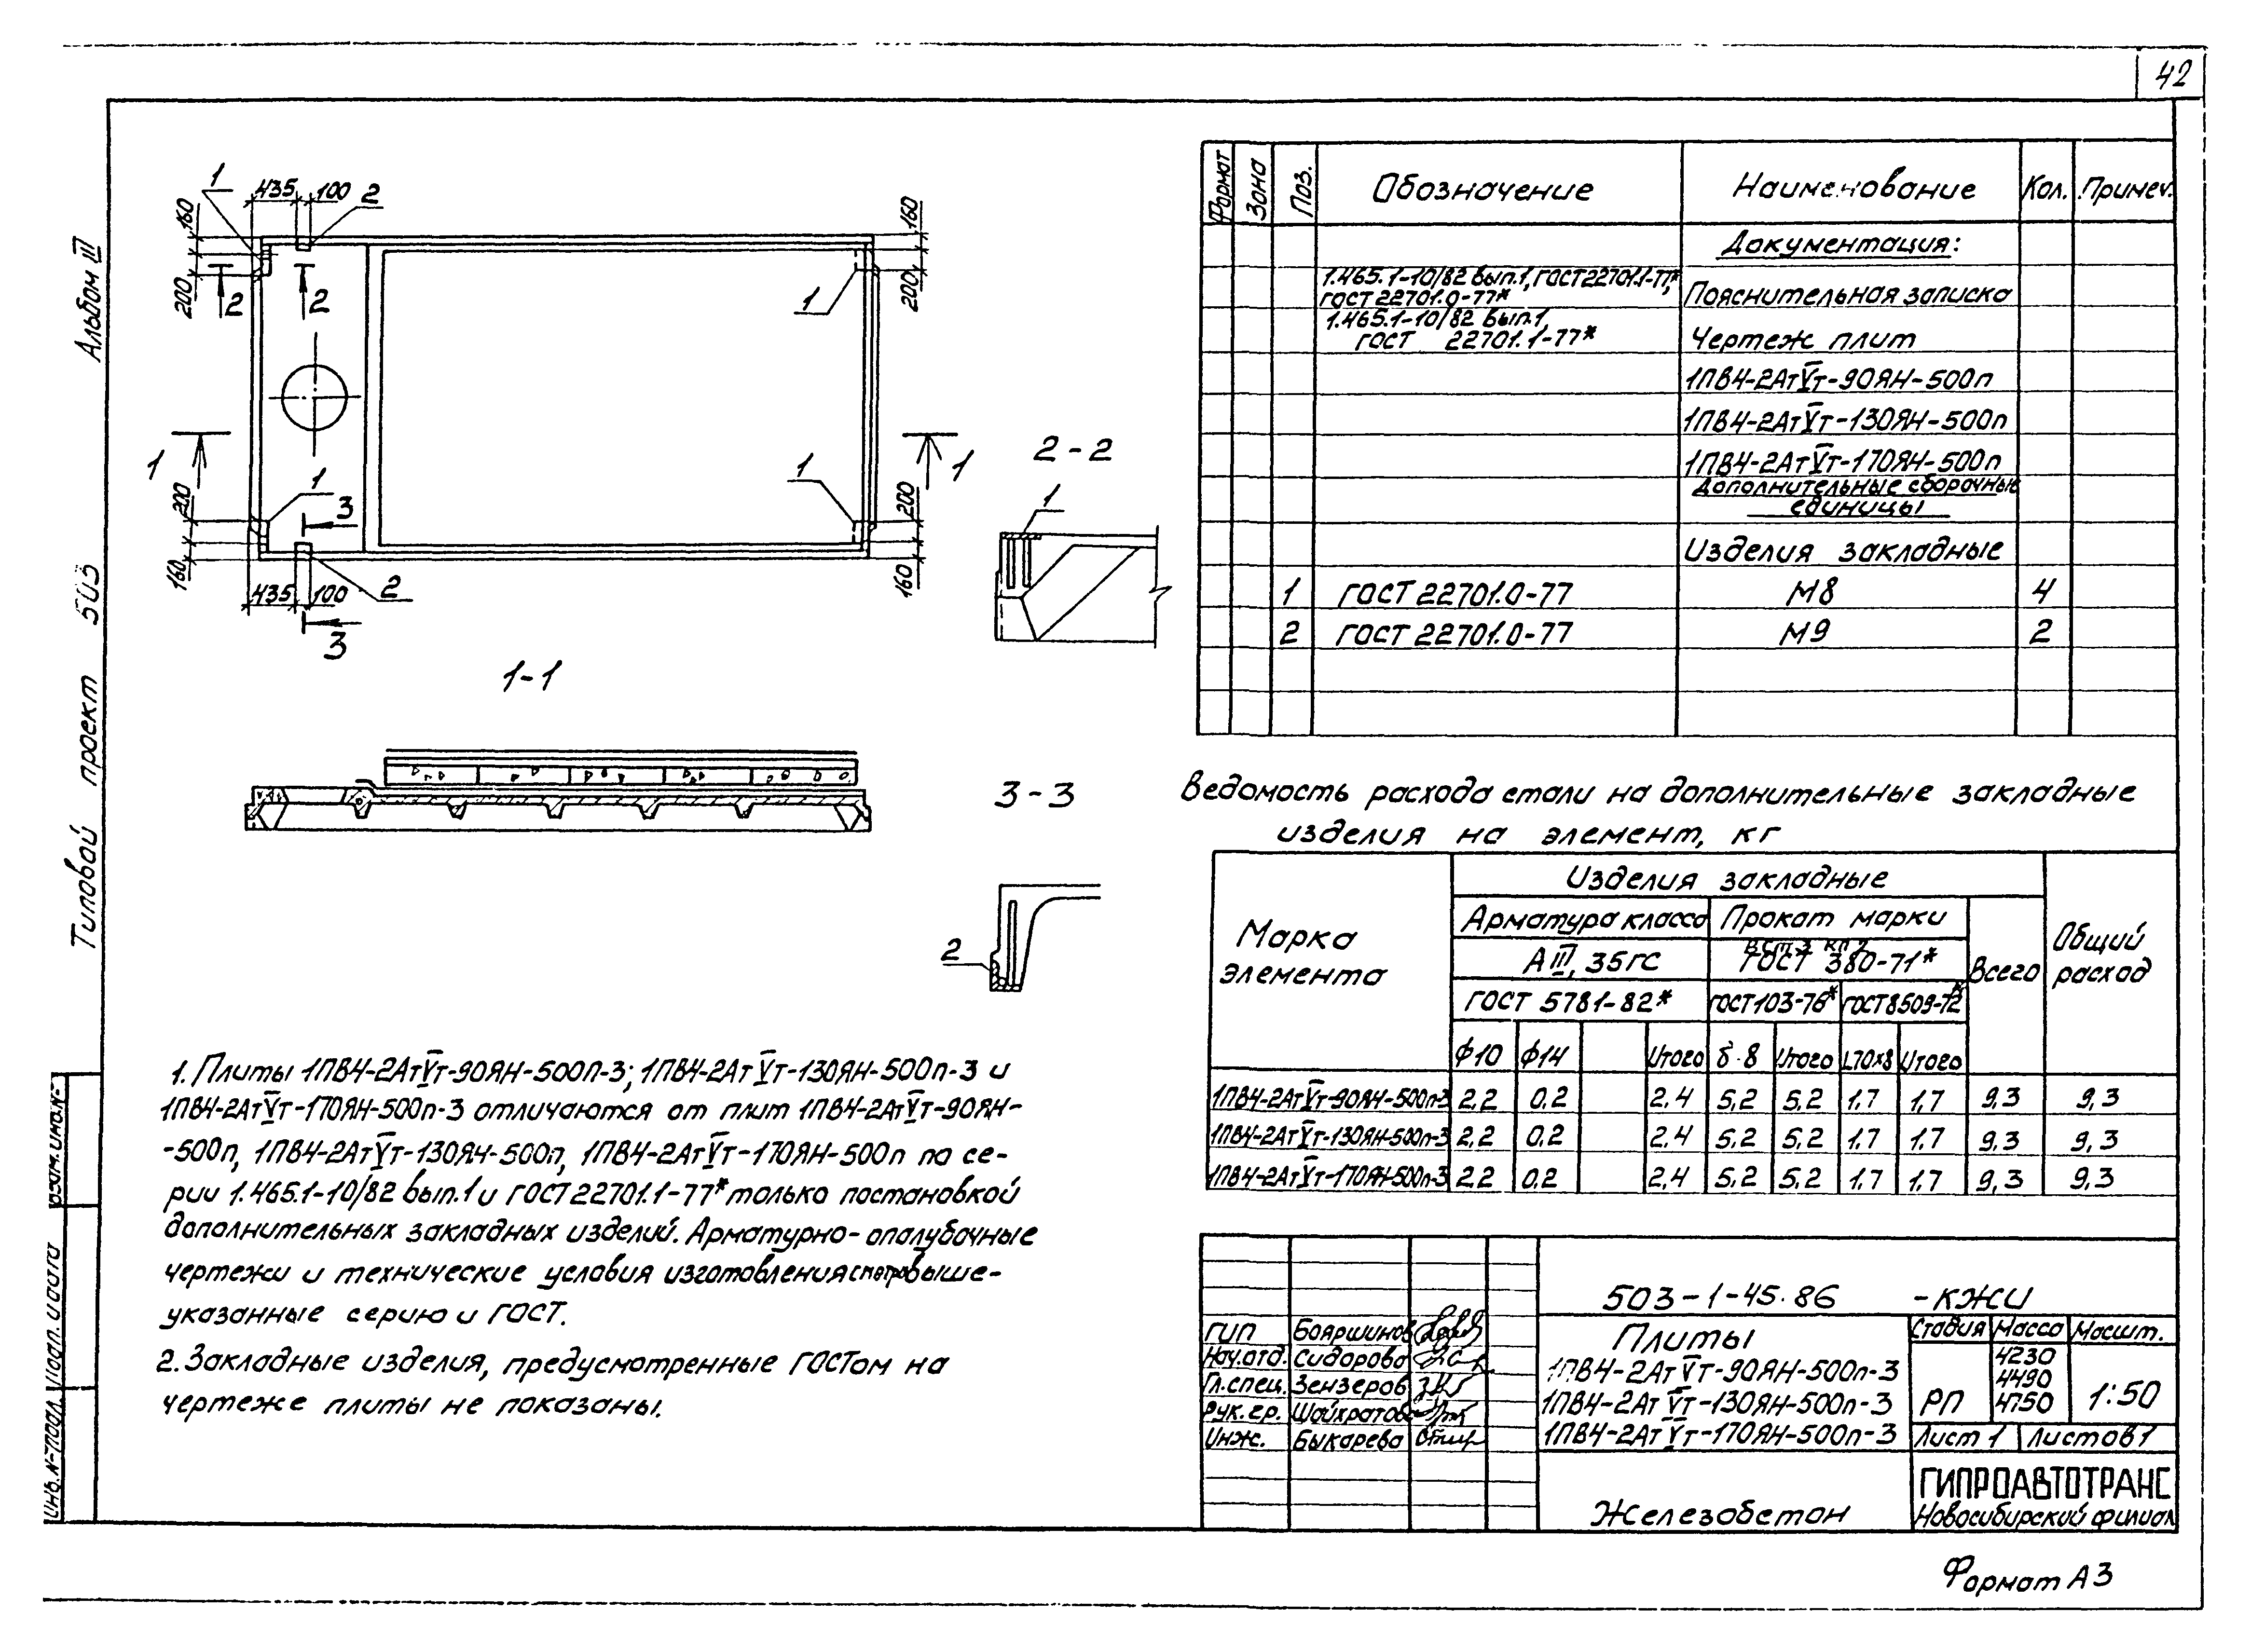 42
Альбом III
Типовой проект 503
Взам. инв. №
Подп. и дата
Инв. № подл.
1
435
100
2
160
200
2
2
160
200
1
1
1
200
160
1
3
435
100
2
3
1
200
160
1
2-2
1
1-1
3-3
2
Формат Зона Поз. Обозначение Наименование Кол. Примеч.
Документация:
1.465.1-10/82 вып.1, ГОСТ 22701.1-77*,
ГОСТ 22701.0-77* Пояснительная записка
1.465.1-10/82 вып.1
ГОСТ 22701.1-77* Чертеж плит
1ПВ4-2АтVт-90ЯН-500п
1ПВ4-2АтVт-130ЯН-500п
1ПВ4-2АтVт-170ЯН-500п
Дополнительные сборочные
единицы
Изделия закладные
1 ГОСТ 22701.0-77 М8 4
2 ГОСТ 22701.0-77 М9 2
Ведомость расхода стали на дополнительные закладные
изделия на элемент, кг
Марка элемента
Изделия закладные
Общий расход
Арматура класса Прокат марки Всего
А III, 35ГС
ВСт3 кп2
ГОСТ 380-71*
ГОСТ 5781-82* ГОСТ103-76* ГОСТ8509-72*
Ф10 Ф14 Итого б-8 Итого L70х8 Итого
1ПВ4-2АтVт-90ЯН-500п-3 2,2 0,2 2,4 5,2 5,2 1,7 1,7 9,3 9,3
1ПВ4-2АтVт-130ЯН-500п-3 2,2 0,2 2,4 5,2 5,2 1,7 1,7 9,3 9,3
1ПВ4-2АтVт-170ЯН-500п-3 2,2 0,2 2,4 5,2 5,2 1,7 1,7 9,3 9,3
1. Плиты 1ПВ4-2АтVт-90ЯН-500п-3; 1ПВ4-2АтVт-130ЯН-500п-3 и
1ПВ4-2АтVт-170ЯН-500п-3 отличаются от плит 1ПВ4-2АтVт-90ЯН-
-500п, 1ПВ4-2АтVт-130ЯН-500п, 1ПВ4-2АтVт-170ЯН-500п по се-
рии 1.465.1-10/82 вып.1 и ГОСТ 22701.1-77* только постановкой
дополнительных закладных изделий. Арматурно-опалубочные
чертежи и технические условия изготовления смотри выше-
указанные серию и ГОСТ.
2. Закладные изделия, предусмотренные ГОСТом на
чертеже плиты не показаны.
503-1-45.86 -КЖИ
ГИП Бояршинов
Нач.отд. Сидорова
Гл.спец. Зензеров
Рук.гр. Шайхратова
Инж. Быкарева
Плиты
1ПВ4-2АтVт-90ЯН-500п-3
1ПВ4-2АтVт-130ЯН-500п-3
1ПВ4-2АтVт-170ЯН-500п-3
Стадия Масса Масшт.
РП
4230
4490
4750
1:50
Лист 1 Листов 1
Железобетон
ГИПРОАВТОТРАНС
Новосибирский филиал
Формат А3